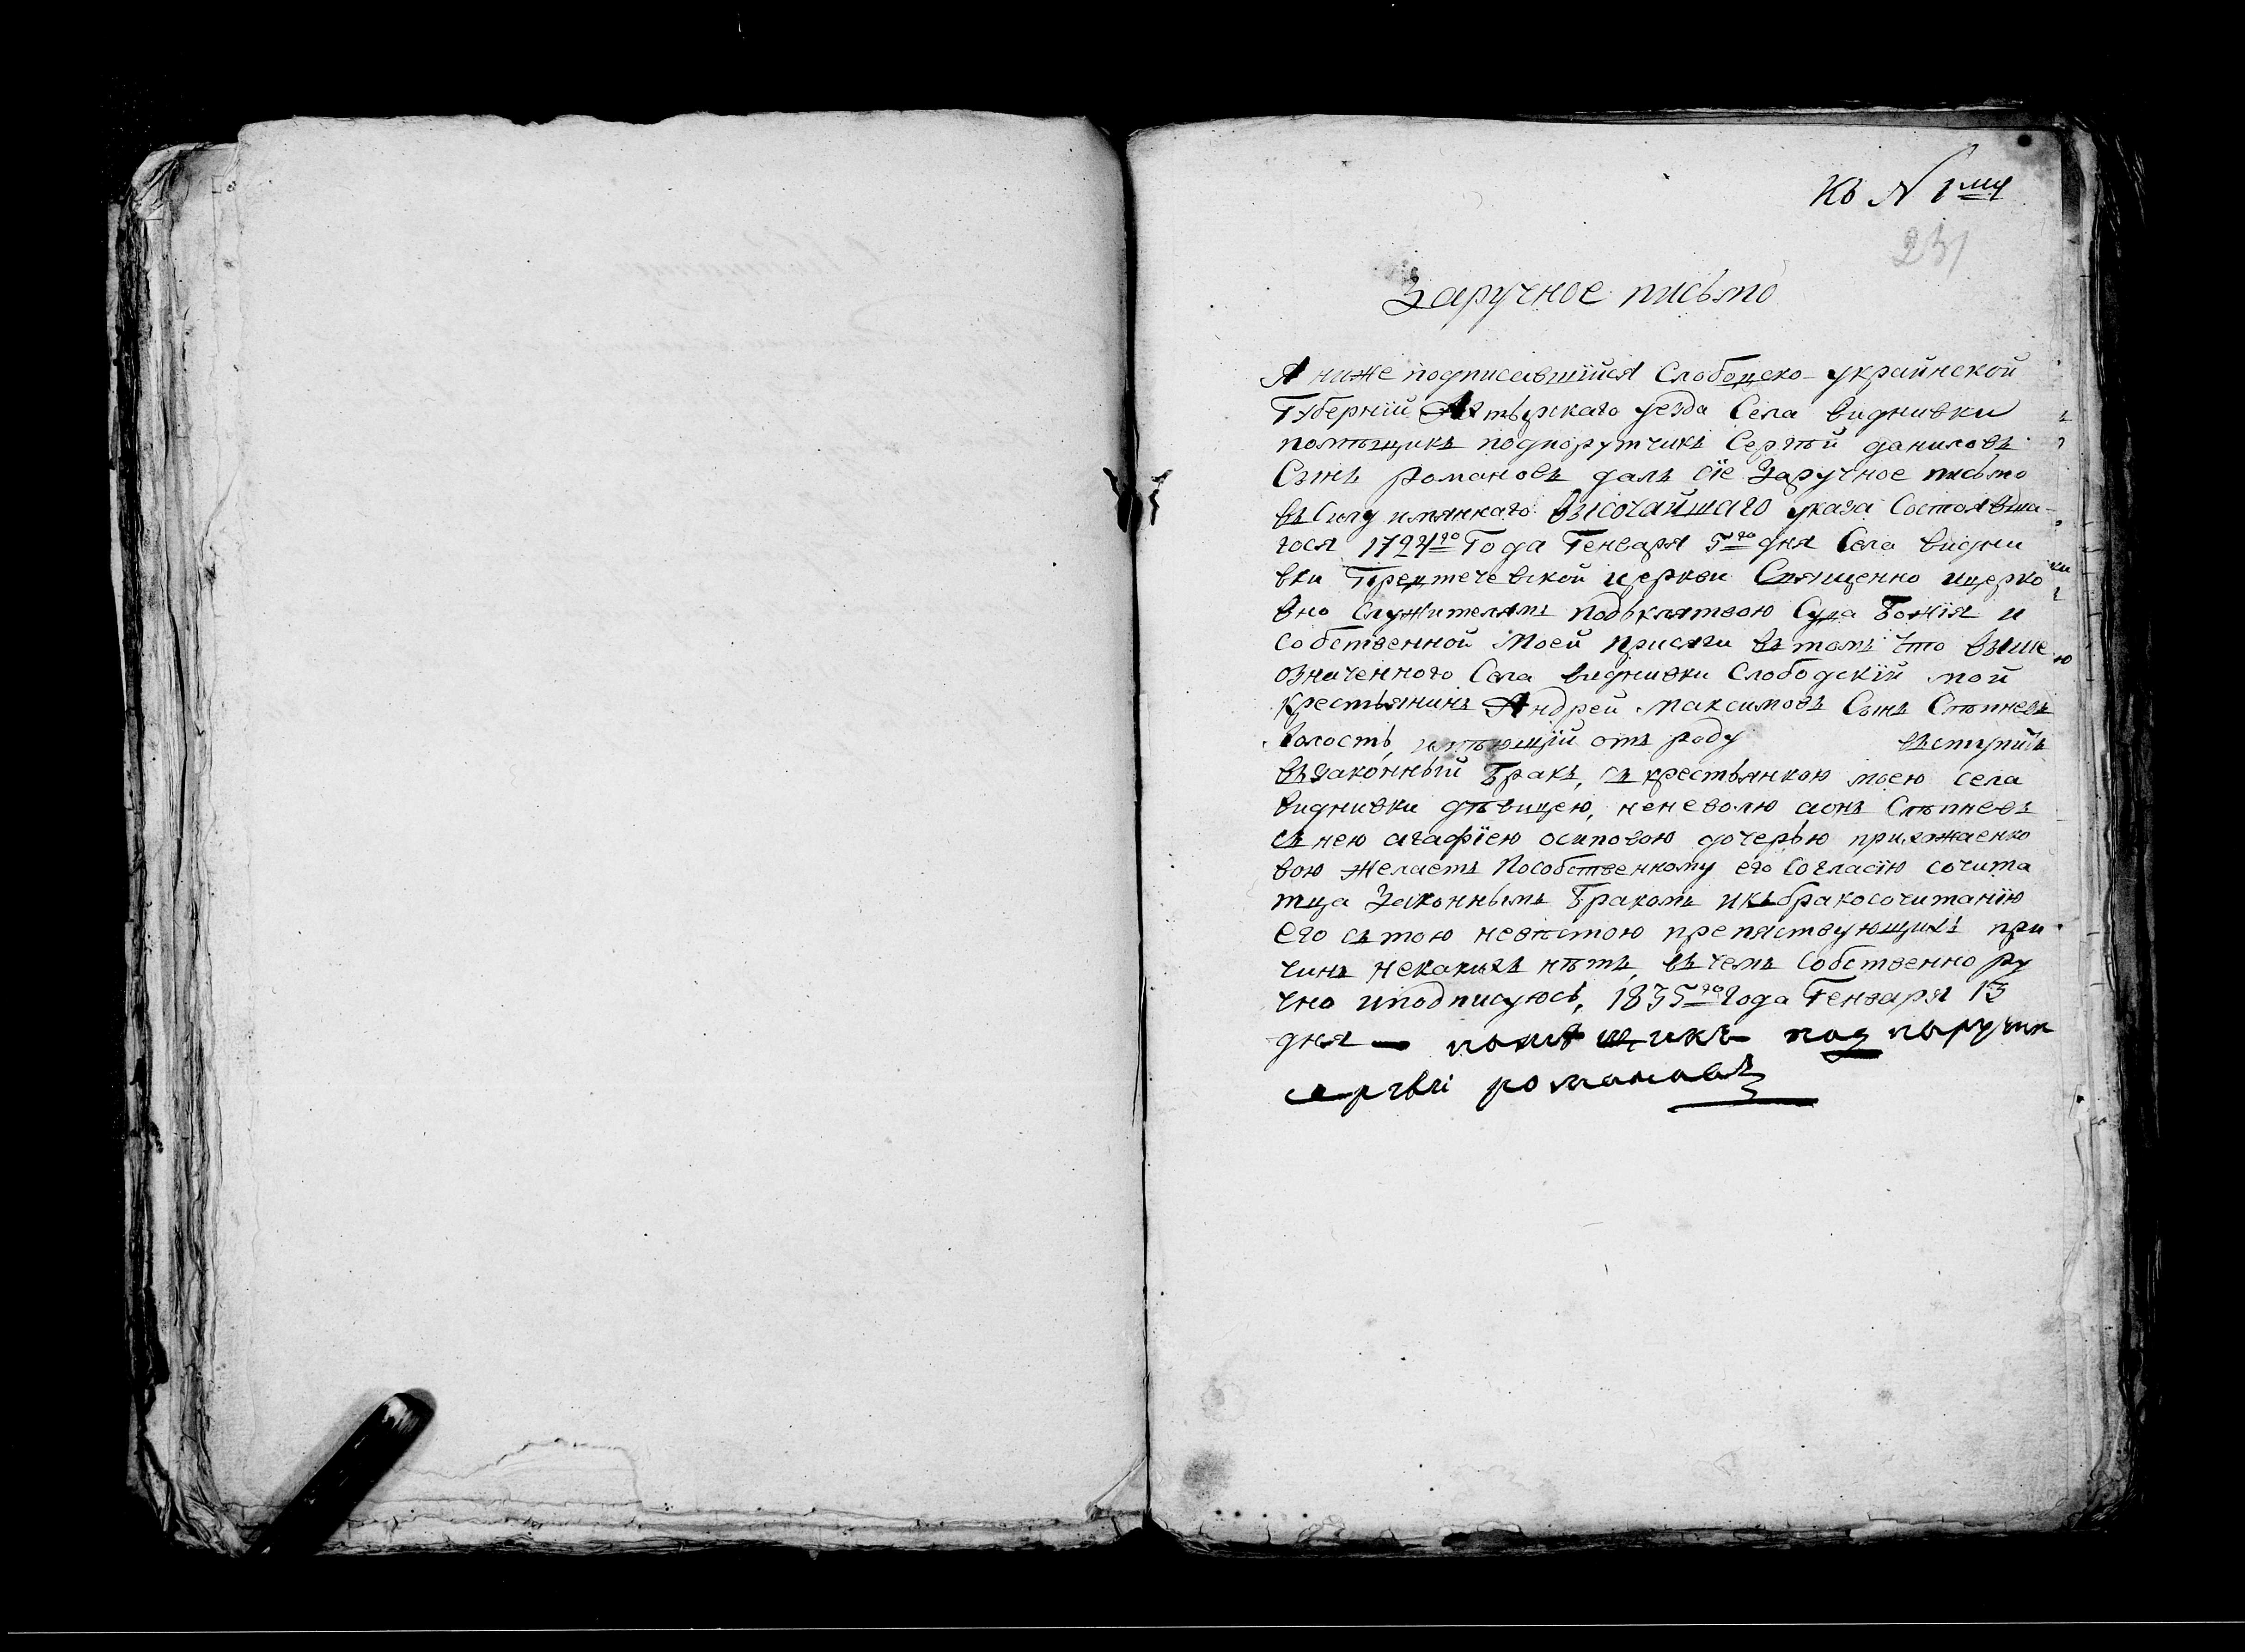 Къ N 1му
231
Заручное письмо
Я ниже подписавшійся Слободско-украинской
Губерніи Ахтырскаго уезда Села Виднивки
помѣщикъ подпорутчикъ Сергѣй даниловъ
Сынъ Романовъ далъ сіе Заручное письмо
въ Силу имяннаго Высочайшаго указа Состоявша-
гося 1724го Года Генваря 5го дня Села Видни
вки Предтечевской церкви Священно ицерко
вно Служителямъ подъклятвою Суда Божія и
собственной моей присяги въ томъ что выше
означенного Села Виднивки Слободскій мой
Крестьянинъ Андрей максимовъ Сынъ Стпневъ
холость, имѣющій отъ роду вступить
въ законный Бракъ, съ крестьянкою моею села
Виднивки дѣвицею, неневолю аонъ Стпневъ
съ нею агафіею осиповою дочерью
вою желаетъ Пособственному его Согласію сочита
тца Законнымъ Бракомъ икъбракосочитанію
Его съ тою невѣстою препяствующихъ при
чинъ некакихъ нѣтъ, въ чемъ Собственно ру
чно иподписуюсь, 1835го года Генваря 13
дня — помѣщикъ под поручик
сергѣй романовъ